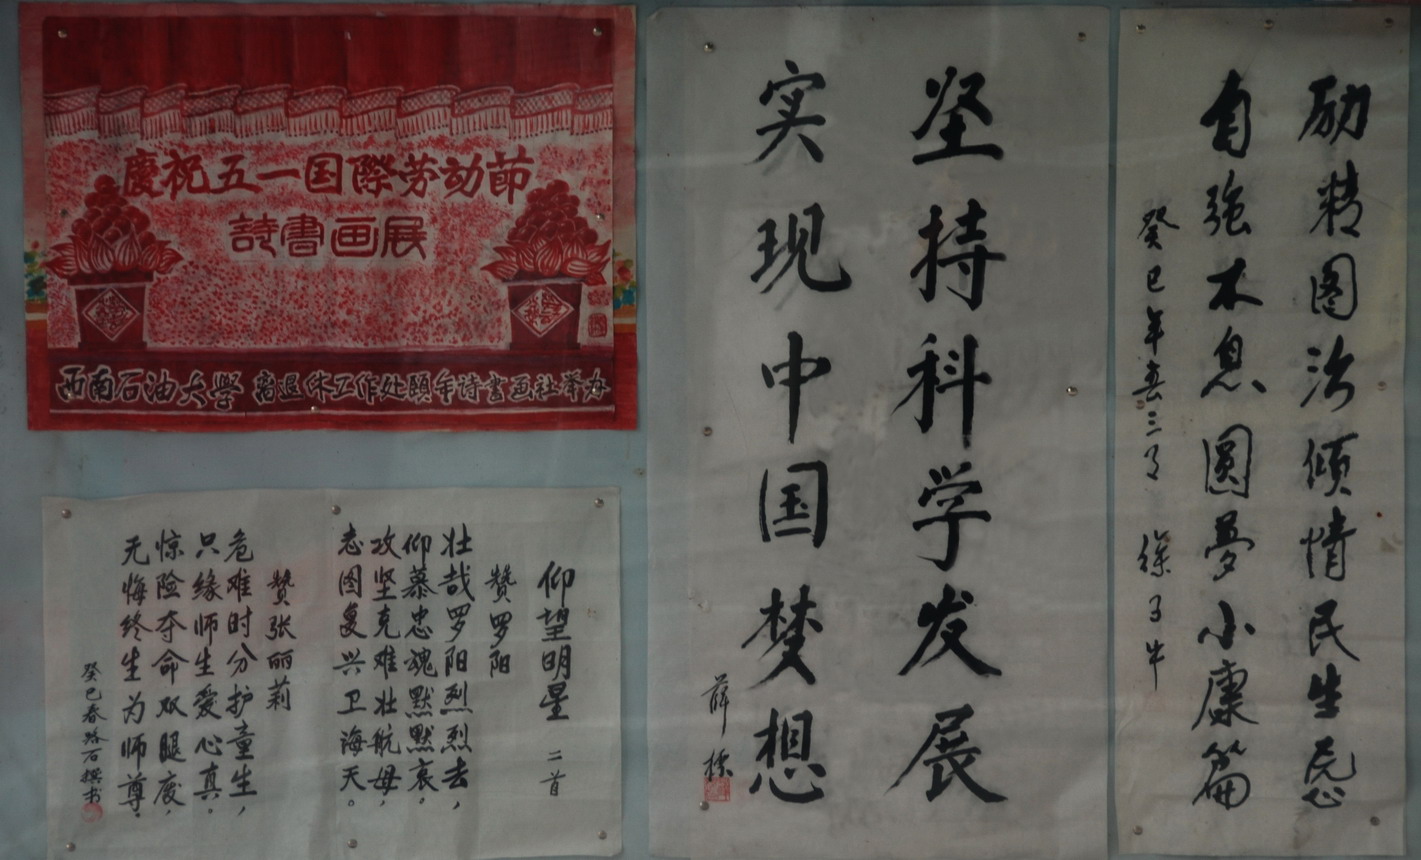 慶祝五一国際劳动節
詩書画展
西南石油大學 离退休工作处頤年詩書画社举办
仰望明星 二首
赞罗阳
壮哉罗阳烈烈去，
仰慕忠魂默默哀，
攻坚克难壮航母，
志图复兴卫海天。
赞张丽莉
危难时分护童生，
只缘师生爱心真。
惊险夺命双腿废，
无悔终生为师尊。
癸巳春路石撰书
坚持科学发展
实现中国梦想
薛栋
励精图治倾情民生
自强不息圆夢小康篇
癸巳年春三月